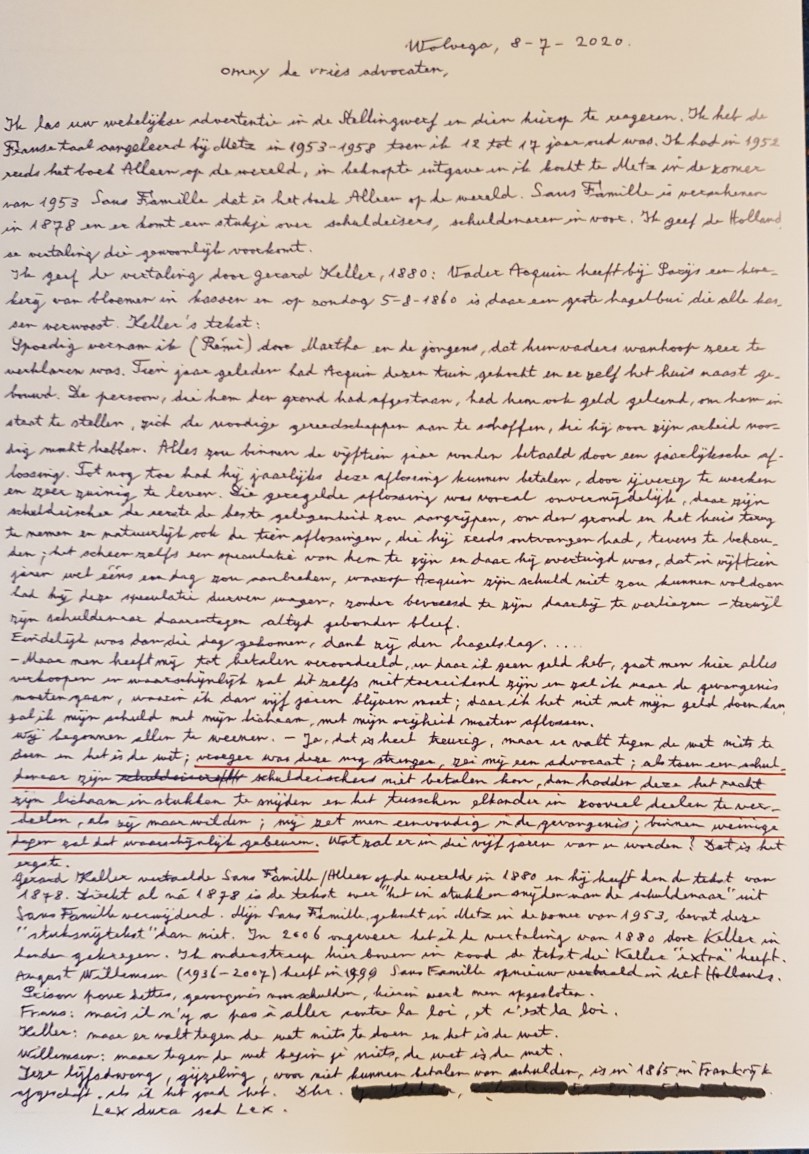 Wolvega, 8-7-2020.
Omny de Vries advocaten,
Ik las uw wekelijkse advertentie in de Stellingwerf en dien hierop te reageren. Ik heb de
Franse taal aangeleerd bij Metz in 1953-1958 toen ik 12 tot 17 jaar oud was. Ik had in 1952
reeds het boek Alleen op de wereld, in beknopte uitgave en ik kocht te Metz in de zomer
van 1953 Sans Famille dat is het boek Alleen op de wereld. Sans Famille is verschenen
in 1878 en er komt een stukje over schuldeisers, schuldenaren in voor. Ik geef de Holland
se vertaling die gewoonlijk voorkomt.
Ik geef de vertaling door Gerard Keller, 1880: Vader Acquin heeft bij Parijs een kwe-
kerij van bloemen in kassen en op zondag 5-8-1860 is daar een grote hagelbui die alle kas-
sen verwoest. Keller's tekst:
Spoedig vernam ik (Rémi) door Martha en de jongens, dat hun vaders wanhoop zeer te
verklaren was. Tien jaar geleden had Acquin dezen tuin gekocht en er zelf het huis naast ge-
bouwd. De persoon, die hem den grond had afgestaan, had hem ook geld geleend, om hem in
staat te stellen, zich de noodige gereedschappen aan te schaffen, die hij voor zijn arbeid noo-
dig mocht hebben. Alles zou binnen de vijftien jaar worden betaald door een jaarlijksche af-
lossing. Tot nog toe had hij jaarlijks deze aflossing kunnen betalen, door ijverig te werken
en zeer zuinig te leven. Die geregelde aflossing was vooral onvermijdelijk, daar zijn
schuldeischer de eerste de beste gelegenheid zou aangrijpen, om den grond en het huis terug
te nemen en natuurlijk ook de tien aflossingen, die hij reeds ontvangen had, tevens te behou-
den; het scheen zelfs een speculatie van hem te zijn en daar hij overtuigd was, dat in vijftien
jaren wel ééns een dag zou aanbreken, waarop Acquin zijn schuld niet zou kunnen voldoen
had hij deze speculatie durven wagen, zonder bevreesd te zijn daarbij te verliezen - terwijl
zijn schuldenaar daarentegen altijd gebonden bleef.
Eindelijk was dan die dag gekomen, dank zij den hagelslag.....
- Maar men heeft mij tot betalen veroordeeld, en daar ik geen geld heb, gaat men hier alles
verkoopen en waarschijnlijk zal dit zelfs niet toereikend zijn en zal ik naar de gevangenis
moeten gaan, waarin ik dan vijf jaren blijven moet; daar ik het niet met mijn geld doen kan,
zal ik mijn schuld met mijn lichaam, met mijn vrijheid moeten aflossen.
Wij begonnen allen te weenen. - Ja, dat is heel treurig, maar er valt tegen de wet niets te
doen en het is de wet; vroeger was deze nog strenger, zei mij een advocaat; als toen een schul-
denaar zijn schuldeischers niet betalen kon, dan hadden deze het recht
zijn lichaam in stukken te snijden en het tusschen elkander in zooveel deelen te ver-
deelen, als zij maar wilden; mij zet men eenvoudig in de gevangenis; binnen weinige
dagen zal dat waarschijnlijk gebeuren. Wat zal er in die vijf jaren van u worden? Dat is het
ergste.
Gerard Keller vertaalde Sans Famille/Alleen op de wereld in 1880 en hij heeft dan de tekst van
1878. Direkt al ná 1878 is de tekst over "het in stukken snijden van de schuldenaar" uit
Sans Famille verwijderd. Mijn Sans Famille, gekocht in Metz in de zomer van 1953, bevat deze
"stuksnijtekst" dan niet. In 2006 ongeveer heb ik de vertaling van 1880 door Keller in
handen gekregen. Ik onderstreep hier boven in rood de tekst die Keller "extra" heeft.
August Willemsen (1936-2007) heeft in 1999 Sans Famille opnieuw vertaald in het Hollands.
Prison pour dettes, gevangenis voor schulden, hierin werd men opgesloten.
Frans: mais il n'y a pas à aller contre la loi, et c'est la loi.
Keller: maar er valt tegen de wet niets te doen en het is de wet.
Willemsen: maar tegen de wet begin je niets, de wet is de wet.
Deze lijfsdwang, gijzeling, voor niet kunnen betalen van schulden, is in 1865 in Frankrijk
afgeschaft, als ik het goed heb. Dhr.
Lex dura sed Lex.